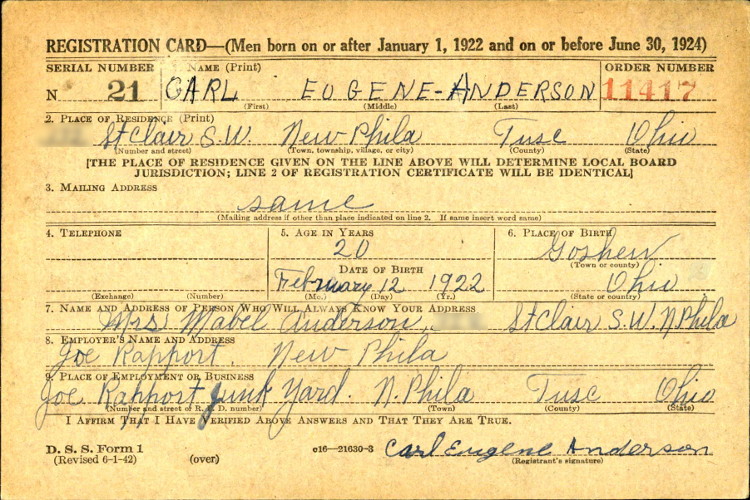 REGISTRATION CARD—(Men born on or after January 1, 1922 and on or before June 30, 1924)
SERIAL NUMBER 1. NAME (Print) ORDER NUMBER
N 21 CARL EUGENE-ANDERSON 11417
(First) (Middle) (Last)
2. PLACE OF RESIDENCE (Print)
St Clair S.W. New Phila Tusc Ohio
(Number and street) (Town, township, village, or city) (County) (State)
[THE PLACE OF RESIDENCE GIVEN ON THE LINE ABOVE WILL DETERMINE LOCAL BOARD
JURISDICTION; LINE 2 OF REGISTRATION CERTIFICATE WILL BE IDENTICAL]
3. MAILING ADDRESS
same
(Mailing address if other than place indicated on line 2. If same insert word same)
4. TELEPHONE 5. AGE IN YEARS 6. PLACE OF BIRTH
20 Goshen
DATE OF BIRTH (Town or county)
February 12 1922 Ohio
(Exchange) (Number) (Mo.) (Day) (Yr.) (State or country)
7. NAME AND ADDRESS OF PERSON WHO WILL ALWAYS KNOW YOUR ADDRESS
Mrs Mabel Anderson, St Clair S.W. N Phila
8. EMPLOYER'S NAME AND ADDRESS
Joe Rapport, New Phila
9. PLACE OF EMPLOYMENT OR BUSINESS
Joe Rapport Junk Yard. N. Phila Tusc Ohio
(Number and street or R. F. D. number) (Town) (County) (State)
I AFFIRM THAT I HAVE VERIFIED ABOVE ANSWERS AND THAT THEY ARE TRUE.
D. S. S. Form 1
(Revised 6-1-42) (over) c16-21630-3 Carl Eugene Anderson
(Registrant's signature)